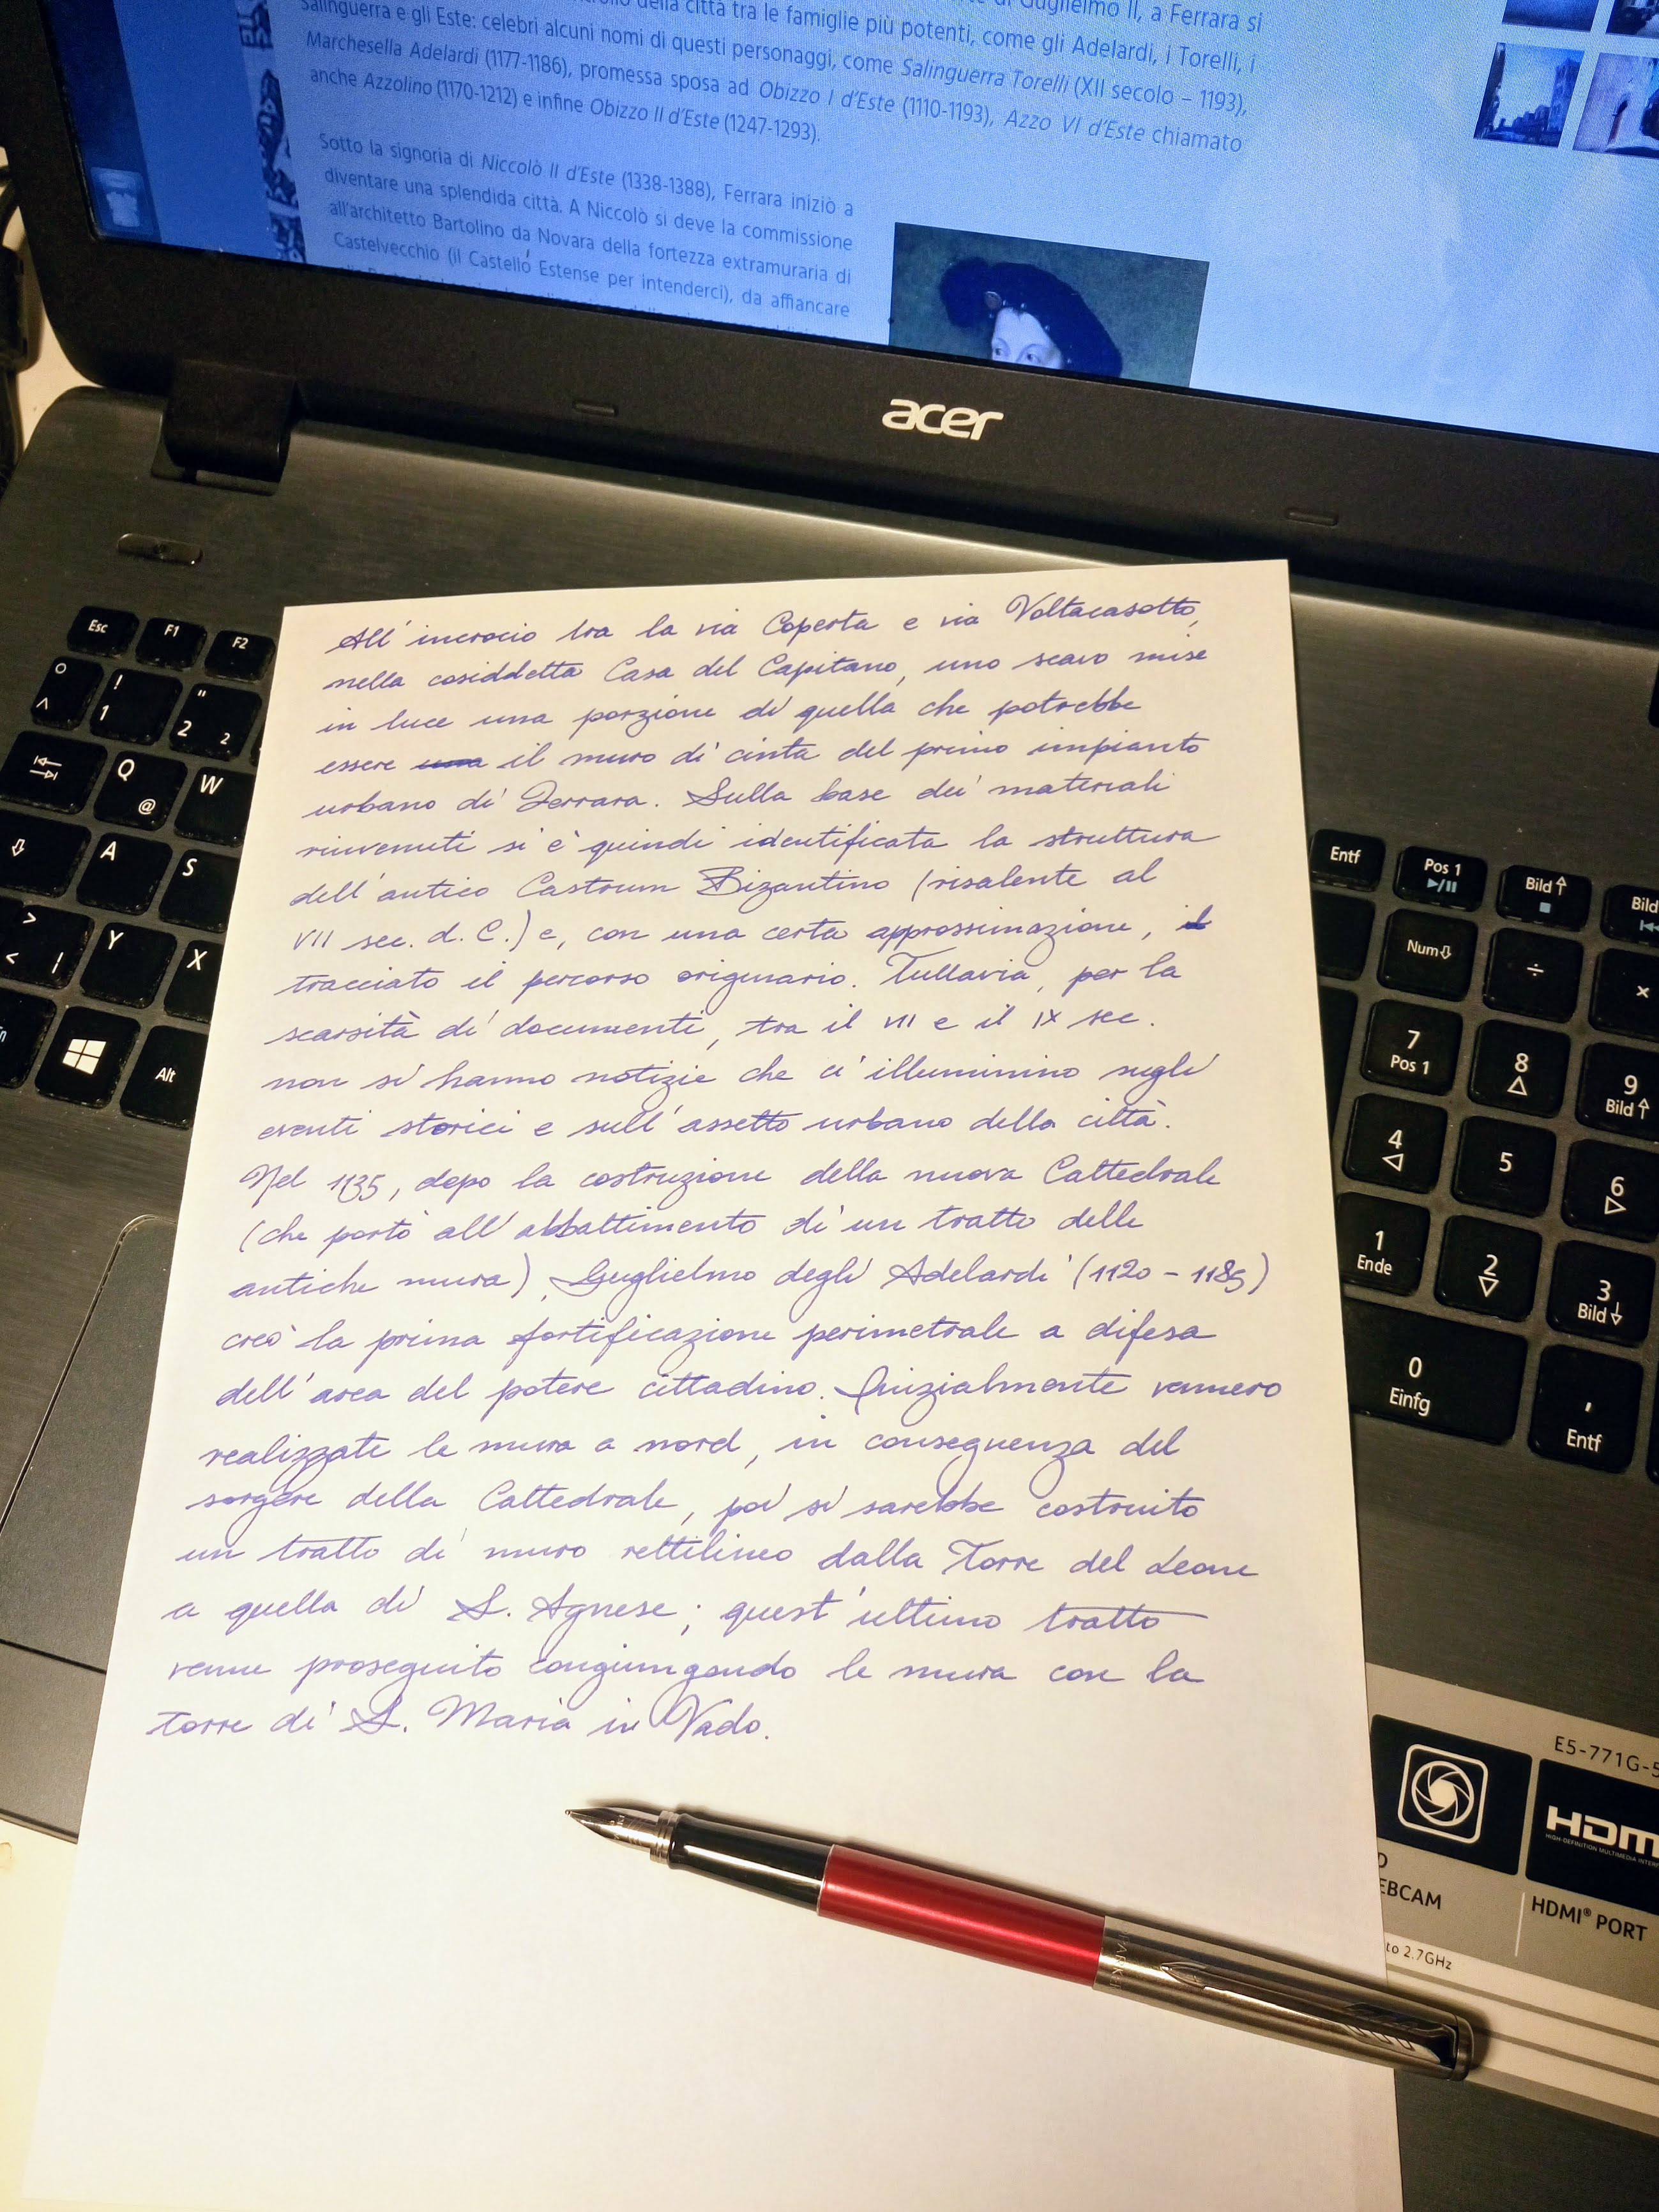 di Guglielmo II, a Ferrara si
della città tra le famiglie più potenti, come gli Adelardi, i Torelli, i
Salinguerra e gli Este: celebri alcuni nomi di questi personaggi, come Salinguerra Torelli (XII secolo – 1193),
Marchesella Adelardi (1177-1186), promessa sposa ad Obizzo I d'Este (1110-1193), Azzo VI d'Este chiamato
anche Azzolino (1170-1212) e infine Obizzo II d'Este (1247-1293).
Sotto la signoria di Niccolò II d'Este (1338-1388), Ferrara iniziò a
diventare una splendida città. A Niccolò si deve la commissione
all'architetto Bartolino da Novara della fortezza extramuraria di
Castelvecchio (il Castello Estense per intenderci), da affiancare
acer
All'incrocio tra la via Coperta e via Voltacasotto,
nella cosiddetta Casa del Capitano, uno scavo mise
in luce una porzione di quella che potrebbe
essere una il muro di cinta del primo impianto
urbano di Ferrara. Sulla base dei materiali
rinvenuti si è quindi identificata la struttura
dell'antico Castrum Bizantino (risalente al
VII sec. d.C.) e, con una certa approssimazione, il
tracciato il percorso originario. Tuttavia, per la
scarsità di documenti, tra il VII e il IX sec.
non si hanno notizie che ci illuminino sugli
eventi storici e sull'assetto urbano della città.
Nel 1135, dopo la costruzione della nuova Cattedrale
(che portò all'abbattimento di un tratto delle
antiche mura), Guglielmo degli Adelardi (1120 - 1185)
creò la prima fortificazione perimetrale a difesa
dell'area del potere cittadino. Inizialmente vennero
realizzate le mura a nord, in conseguenza del
sorgere della Cattedrale, poi si sarebbe costruito
un tratto di muro rettilineo dalla Torre del Leone
a quella di S. Agnese; quest'ultimo tratto
venne proseguito congiungendo le mura con la
torre di S. Maria in Vado.
Esc F1 F2
° ^ ! 1 " 2 2
Q @ W
A S
> < | Y X
Alt
Entf Pos 1 Bild Bild
Num ÷ ×
7 Pos 1 8 9 Bild
4 5 6
1 Ende 2 3 Bild
0 Einfg , Entf
E5-771G-5
HDMI
HIGH-DEFINITION MULTIMEDIA INTERF
EBCAM
HDMI® PORT
to 2.7GHz
PARKER